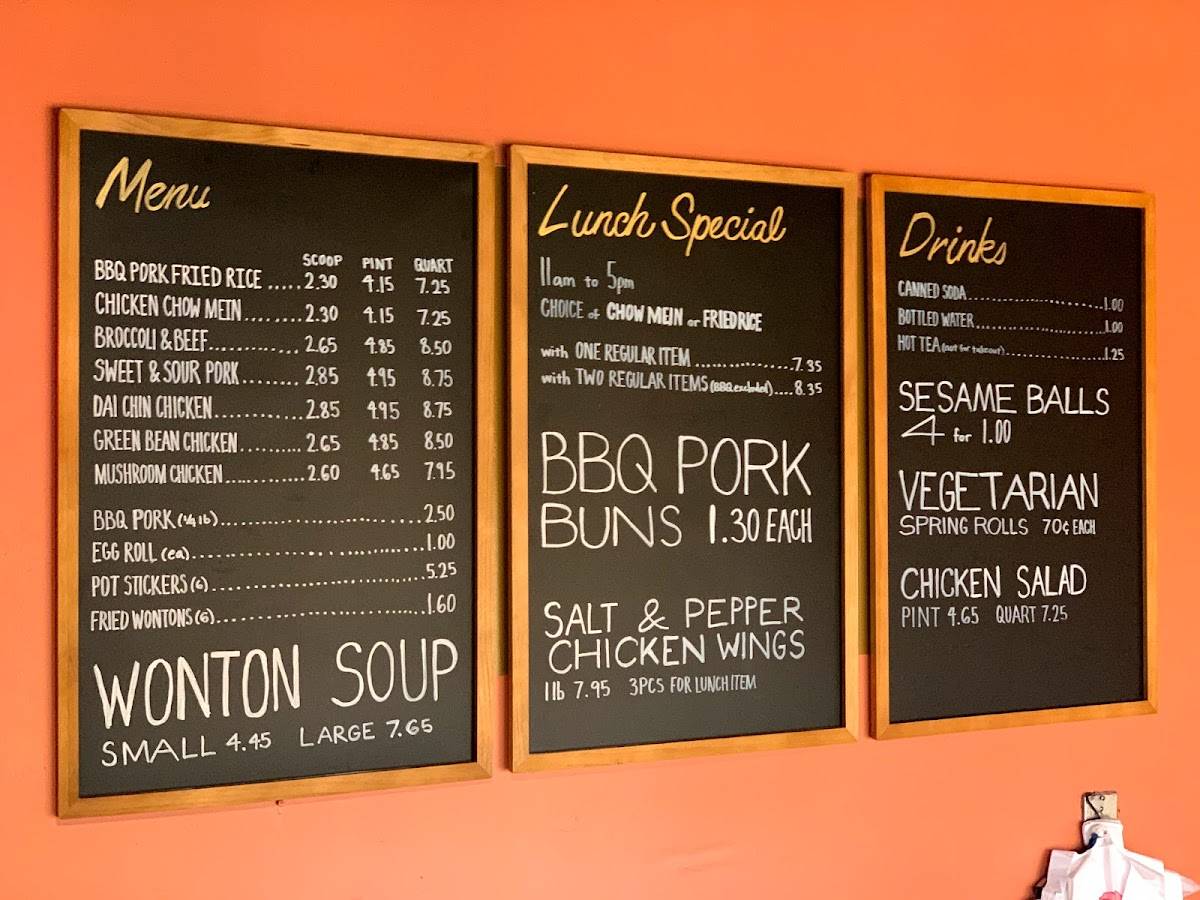 Menu
SCOOP PINT QUART
BBQ PORK FRIED RICE .....2.30 4.15 7.25
CHICKEN CHOW MEIN........2.30 4.15 7.25
BROCCOLI & BEEF............2.65 4.85 8.50
SWEET & SOUR PORK........2.85 4.95 8.75
DAI CHIN CHICKEN............2.85 4.95 8.75
GREEN BEAN CHICKEN.........2.65 4.85 8.50
MUSHROOM CHICKEN...........2.60 4.65 7.95
BBQ PORK (1/4 lb)........................2.50
EGG ROLL (ea)............................1.00
POT STICKERS (6).........................5.25
FRIED WONTONS (6)........................1.60
WONTON SOUP
SMALL 4.45 LARGE 7.65
Lunch Special
11am to 5pm
CHOICE of CHOW MEIN or FRIED RICE
with ONE REGULAR ITEM ..............7.35
with TWO REGULAR ITEMS (BBQ excluded)....8.35
BBQ PORK
BUNS 1.30 EACH
SALT & PEPPER
CHICKEN WINGS
1 lb 7.95 3PCS FOR LUNCH ITEM
Drinks
CANNED SODA........................1.00
BOTTLED WATER......................1.00
HOT TEA (not for takeout).................1.25
SESAME BALLS
4 for 1.00
VEGETARIAN
SPRING ROLLS 70¢ EACH
CHICKEN SALAD
PINT 4.65 QUART 7.25